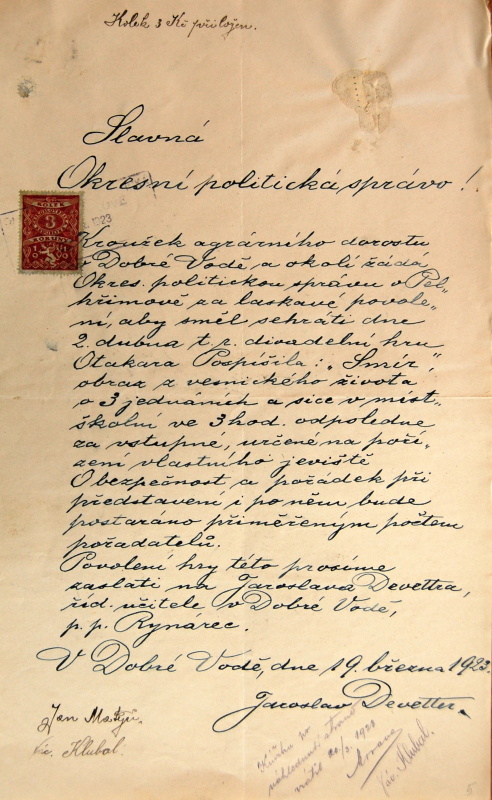 Kolek 3 Kč přiložen.
Slavná
Okresní politická správo!
KOLEK
3
KORUNY
1923
Kroužek agrárního dorostu
v Dobré Vodě a okolí žádá
Okres. politickou správu v Pel„
hřimově za laskavé povole„
ní, aby směl sehráti dne
2. dubna t. r. divadelní hru
Otakara Pospíšila: „Smír",
obraz z vesnického života
o 3 jednáních a sice v míst.
školní ve 3 hod. odpoledne
za vstupné, určené na poří„
zení vlastního jeviště
O bezpečnost a pořádek při
představení i po něm bude
postaráno přiměřeným počtem
pořadatelů.
Povolení hry této prosíme
zaslati na Jaroslava Devettra,
říd. učitele v Dobré Vodě,
p. p. Rynárec.
V Dobré Vodě, dne 19. března 1923.
Jaroslav Devetter.
Jan
Vác. Klubal.
vrátil 20/3. 1923
Vác. Klubal.
5